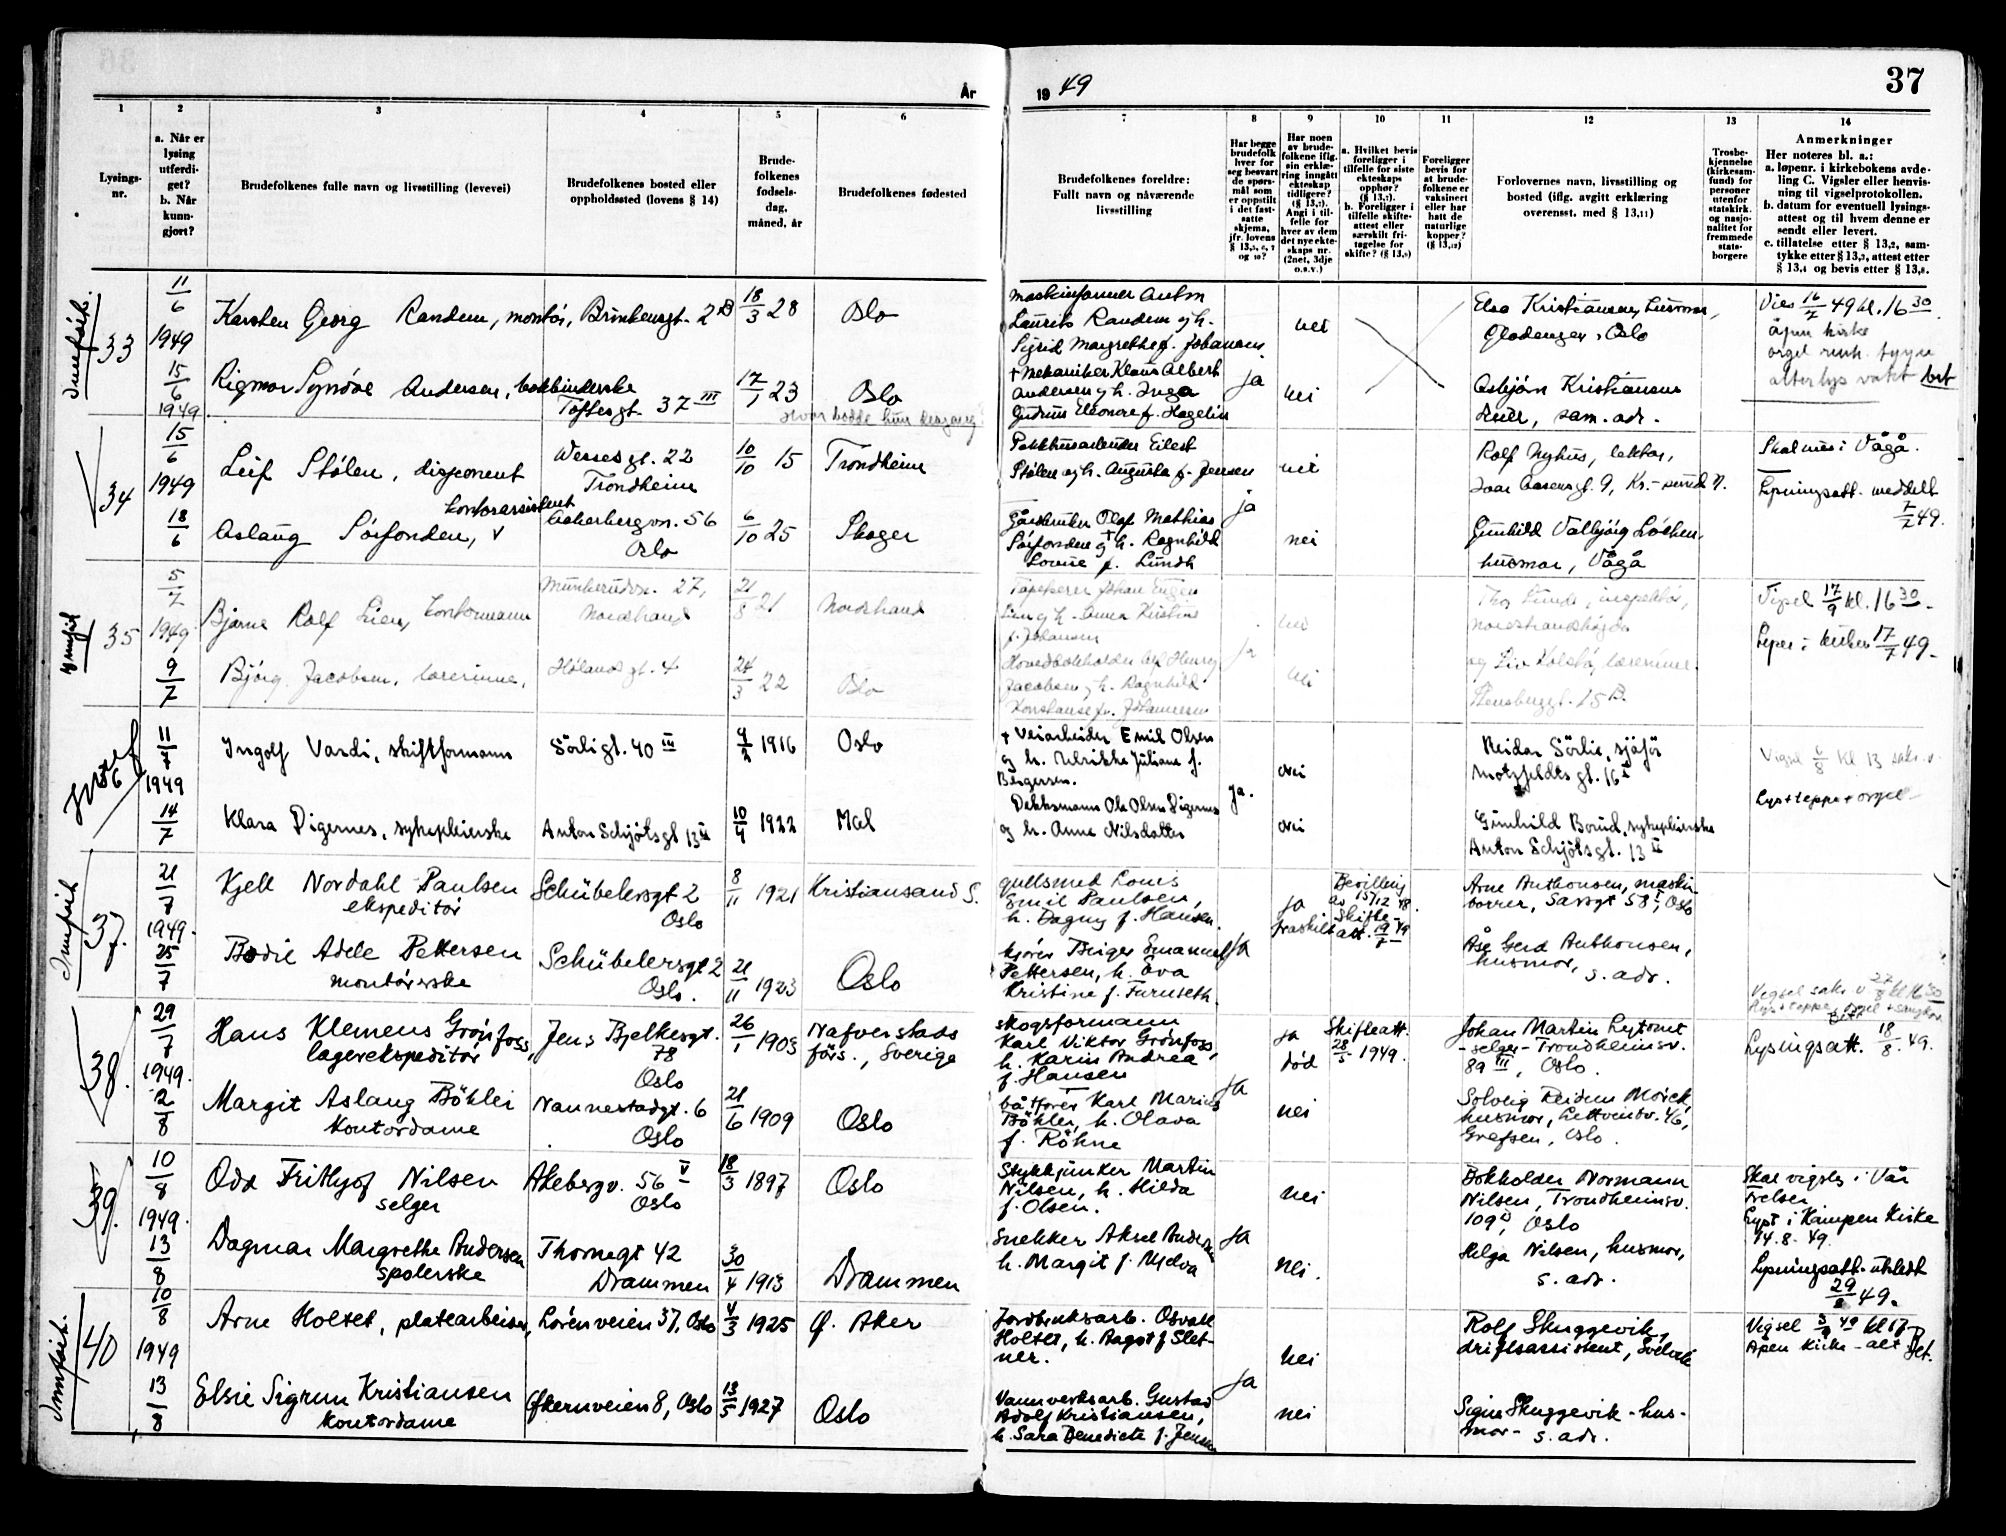 År
19 49
37
1
2
3
4
5
6
7
8
9
10
11
12
13
14
Lysings-
nr.
a. Når er
lysing
utferdi-
get?
b. Når
kunn-
gjort?
Brudefolkenes fulle navn og livsstilling (levevei)
Brudefolkenes bosted eller
oppholdssted (lovens § 14)
Brude-
folkenes
fødsels-
dag,
måned, år
Brudefolkenes fødested
Brudefolkenes foreldre:
Fullt navn og nåværende
livsstilling
Har begge
brudefolk
hver for
seg besvart
de spørs-
mål som
er oppstilt
i det fast-
satte
skjema,
jfr. lovens
Har noen
av brude-
folkene iflg.
sin erklæ-
ring inngått
ekteskap
tidligere?
(§ 13,7).
Angi i til-
felle for
hver av dem
det nye ekte-
skaps nr.
(2net, 3dje
o.s.v.)
a. Hvilket bevis
foreligger i
tilfelle for siste
ekteskaps
opphør?
(§ 13,7).
b. Foreligger i
tilfelle skifte-
attest eller
særskilt fri-
tagelse for
skifte? (§ 13,9)
Foreligger
bevis for
at brude-
folkene er
vaksinert
eller har
hatt de
naturlige
kopper?
(§ 13,12)
Forlovernes navn, livsstilling og
bosted (iflg. avgitt erklæring
overensst. med § 13,11)
Trosbe-
kjennelse
(kirkesam-
fund) for
personer
utenfor
statskirk.
og nasjo-
nalitet for
fremmede
stats-
borgere
Anmerkninger
Her noteres bl. a.:
a. løpenr. i kirkebokens avde-
ling C. Vigsler eller henvis-
ning til vigselprotokollen.
b. datum for eventuell lysings-
attest og til hvem denne er
sendt eller levert.
c. tillatelse etter § 13,2, sam-
tykke etter § 13,3, attest etter
§ 13,4 og bevis etter § 13,8.
Innført.
33
11/6
1949
15/6
1949
Karsten Georg Randem, montør,
gt. 2 B
18/3 28
Oslo
Laurits Randem og h.
Sigrid Margrethe f. Johansen
nei
Elsa Kristiansen, husmor,
Oslo
Vies 16/7 49 kl. 16 30
åpen kirke
alterlys vakt
Rigmor Synnöve Andersen, bokbinderske
Toftesgt. 37 III
17/1 23
Oslo
hvor bodde hun
† Mekaniker Klaus Albert
Andersen og h. Inga
Gudrun Eleonore f. Hagelin
ja
nei
Asbjørn Kristiansen
sam. adr.
34
15/6
1949
18/6
Leif Stölen, disponent
Wesselsgt. 22
Trondheim
10/10 15
Trondheim
Pakkhusarbeider Eilert
Stölen og h. Augusta f. Jensen
nei
Rolf Nyhus, lektor,
Ivar Aasensgt. 9, Kr.-sund N.
Skal vies i Vågå.
Lysningsatt. meddelt
7/7 49.
Aslaug Sörfonden,
kontorassistent
Aakerbergvn. 56
Oslo
6/10 25
Skoger
Gårdbruker Olaf Mathias
Sörfonden og † h. Ragnhild
Lovise f. Lundh
ja
nei
Gunhild Valbjörg
husmor, Vågå
35
5/7
1949
9/7
Bjarne Rolf Lien, kontormann
Munkerudvn. 27,
Nordstrand
21/8 21
Nordstrand
Tapetserer Johan Eugen
Lien og h. Anna Kristine
f. Johansen
nei
Thor Lunde, inspektör,
Nordstrandshögda
Vigsel 17/9 kl. 16 30
17/7 49.
Bjørg Jacobsen, lærerinne,
Hölandsgt. 4
24/3 22
Oslo
Hovedbokholder Leif Henry
Jacobsen og h. Ragnhild
Konstanse f. Johannesen
ja
nei
og Liv Kolstö, lærerinne
Stensberggt. 15 B.
36
11/7
1949
14/7
Ingolf Vardi, skiftformann
Sörligt. 40 III
9/2 1916
Oslo
† Veiarbeider Emil Olsen
og h. Ulrikke Juliane f.
Börgersen.
nei
Reidar Sörlie, sjåför
Motzfeldtsgt. 16 I
Vigsel 6/8 kl 13
Lys + teppe + orgel
Klara Digernes, sykepleierske
Anton Schjötsgt 13 II
10/4 1922
Mal
Dekksmann Ole Olsen Digernes
og h. Anne Nilsdatter
ja.
nei
Gunhild Borud, sykepleierske
Anton Schjötsgt. 13 II
Innført
37.
21/7
1949.
25/7
Kjell Nordahl Paulsen
ekspeditör
Schübelersgt 2
Oslo
8/11 1921
Kristiansand S.
gullsmed Louis
Emil Paulsen,
h. Dagny f. Hansen.
ja
fraskilt
Bevilling
av 15/12 48.
Skifte-
att. 19/7 49
Arne Anthonsen, maskin-
borer, Sarsgt 58 I, Oslo
Bodil Adele Pettersen
montörerske
Schübelersgt 2
Oslo.
21/11 1923
Oslo
kjörer Birger Emanuel
Pettersen, h. Eva
Kristine f. Furuseth.
ja
Åse Gerd Anthonsen,
husmor,
s. adr.
Vigsel sakr. 27/8 kl 16 30
38.
29/7
1949.
2/8
Hans Klemens Grönfoss,
lagerekspeditör
Jens Bjelkesgt.
78
Oslo
26/1 1903
Nafverstads
förs., Sverige
skogsformann
Karl Viktor Grönfoss,
h. Karin Andrea
f. Hansen
ja
död
Skifteatt.
28/5 1949.
Johan Martin
- selger - Trondheimsv.
89 III, Oslo.
Lysingsatt. 18/8. 49.
Margit Aslaug Böhler
kontordame
Nannestadgt. 6
Oslo
21/6 1909
Oslo
båtförer Karl Marius
Böhler, h. Olava
f. Röhne
ja
nei
Solveig Reidun Mörck
husmor, 46,
Grefsen, Oslo.
39.
10/8
1949.
13/8
Odd Frithjof Nilsen
selger
Akebergv. 56 V
Oslo
18/3 1897
Oslo
Stykkjunker Martin
Nilsen, h. Hilda
f. Olsen.
nei
Bokholder Normann
Nilsen, Trondheimsv.
109 V, Oslo
Skal vigsles i Vår
Frelser
Lyst i Kampen Kirke
14.8.49.
Dagmar Margrethe Andersen
spolerske
Thornegt 42
Drammen
30/4 1913
Drammen
Snekker Aksel Andersen
h. Margit f. Mjelva
ja
nei.
Helga Nilsen, husmor,
s. adr.
Lysningsatt. utstedt
29/8 49.
Innført.
40
10/8
1949
13/8
Arne Holset, platearbeider,
Lörenveien 37, Oslo
4/3 1925
Ø. Aker
Jordbruksarb. Osvald
Holset, h. Aagot f Slet-
ner.
nei
Rolf Skuggevik,
driftsassistent,
Vigsel 3/9 49 kl 17
Åpen kirke - alt
Elsie Sigrun Kristiansen
kontordame
Økernveien 8, Oslo
13/5 1927
Oslo
Vannverksarb. Gustav
Adolf Kristiansen,
h. Sara Benedicte f. Jensen
ja
nei
Signe Skuggevik - hus-
mor - s. adr.